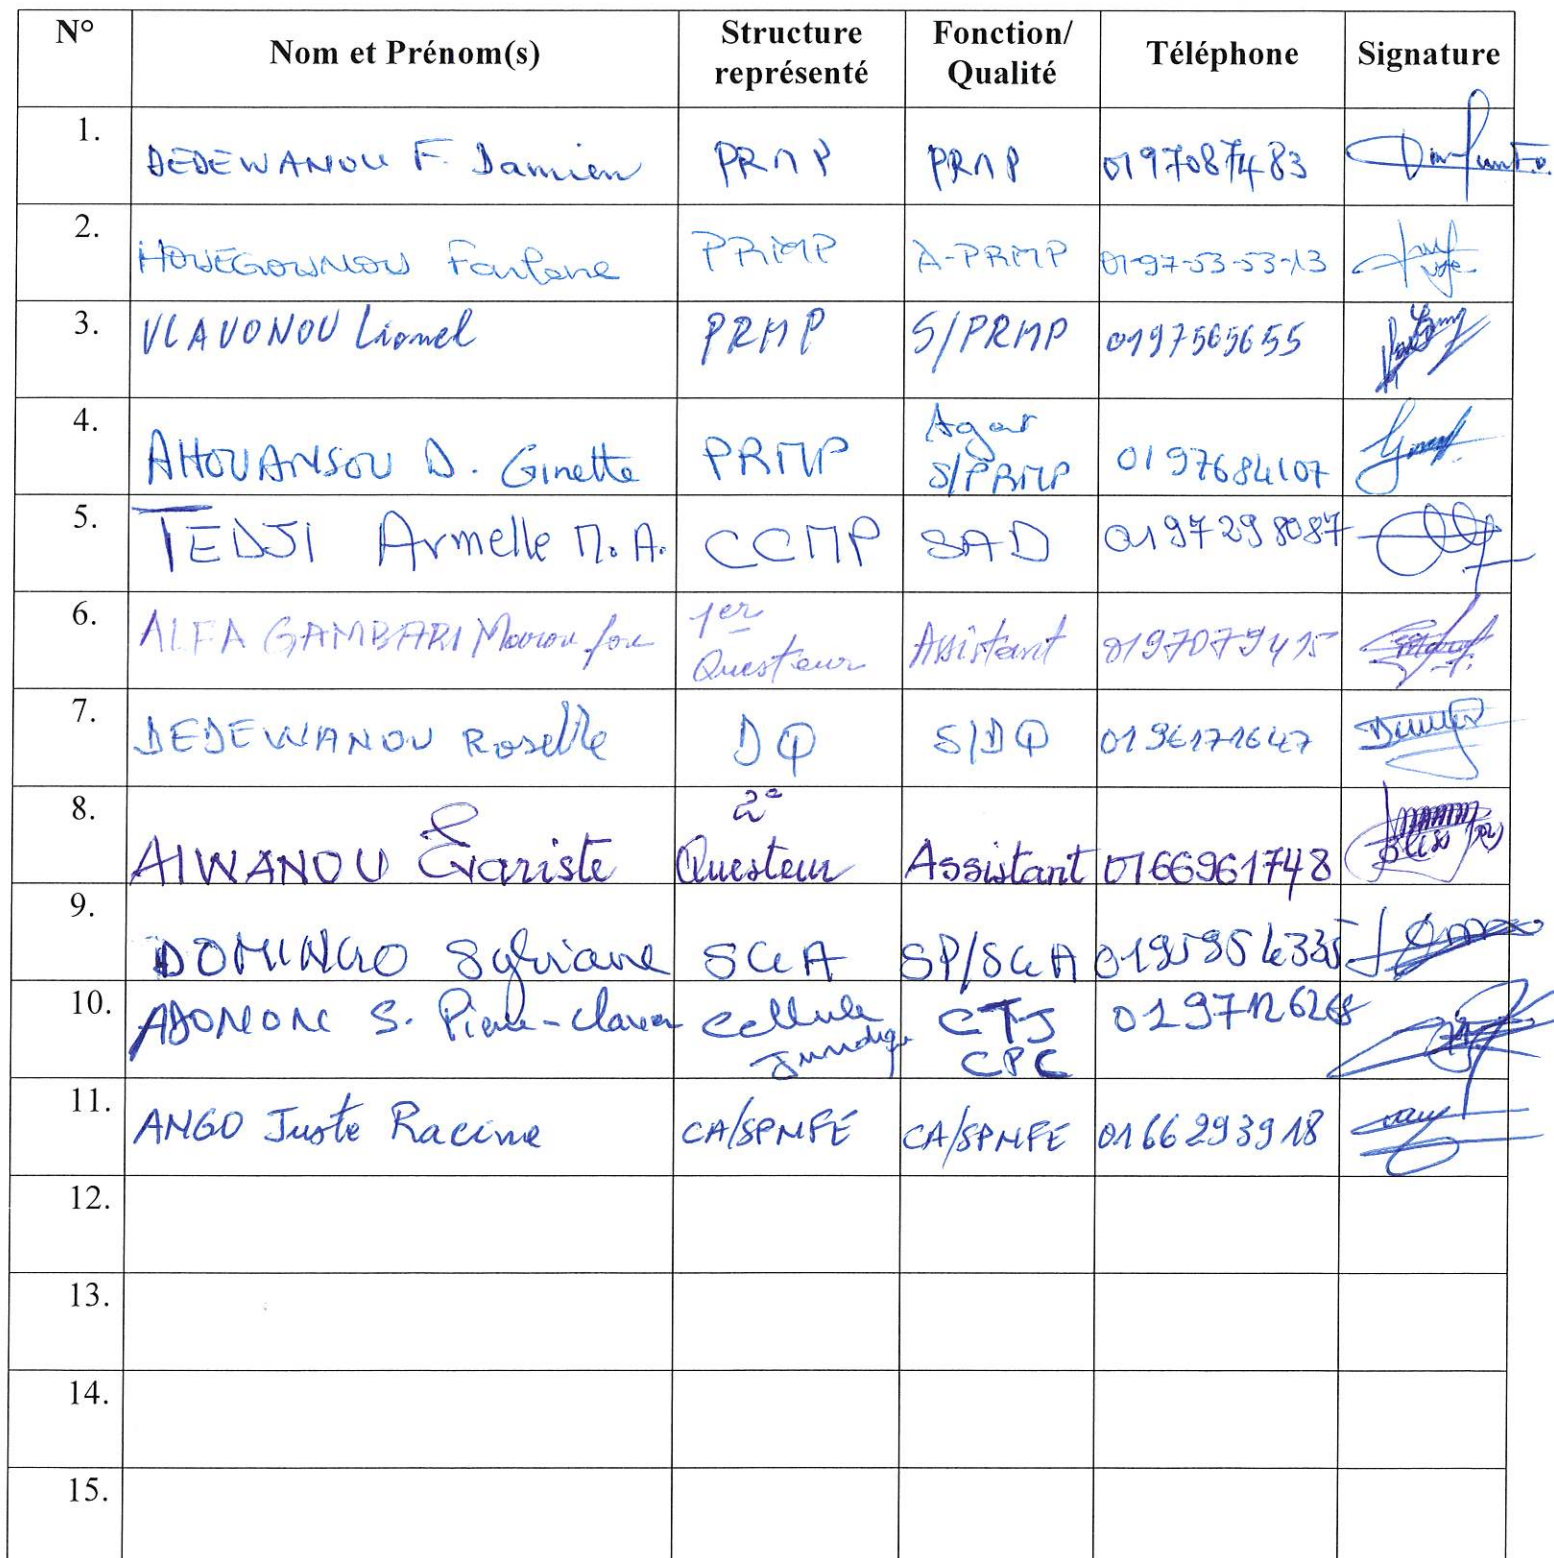 N° Nom et Prénom(s) Structure représenté Fonction/ Qualité Téléphone Signature
1. DEDEWANOU F. Damien PRMP PRMP 0197087483
2. HOUEGOWNOU PRMP A-PRMP 01-97-53-53-13
3. VLAVONOU Lionel PRMP S/PRMP 0197565655
4. AHOUANSOU D. Ginette PRMP S/PRMP 0197684107
5. TEDJI Armelle M. A. CCMP SAD 0197298087
6. ALFA GAMBARI 1er Questeur Assistant 0197079415
7. DEDEWANOU Roselle DQ S/DQ 0196171647
8. AIWANOU Évariste 2e Questeur Assistant 0166961748
9. DOMINGO Sylviane SGA SP/SGA
10. ADONON S. Pierre-Claver Cellule Juridique CTJ CPC
11. ANGO Juste Racine CA/SPMFE CA/SPMFE 0166293918
12.
13.
14.
15.